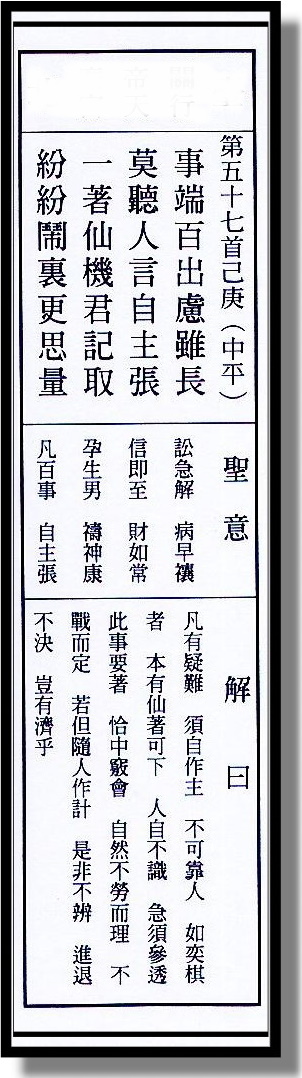 第五十七首己庚（中平）
事端百出慮雖長
莫聽人言自主張
一著仙機君記取
紛紛鬧裏更思量
聖意
訟急解 病早禳
信即至 財如常
孕生男 禱神康
凡百事 自主張
解曰
凡有疑難 須自作主 不可靠人 如奕棋
者 本有仙著可下 人自不識 急須參透
此事要著 恰中竅會 自然不勞而理 不
戰而定 若但隨人作計 是非不辨 進退
不決 豈有濟乎